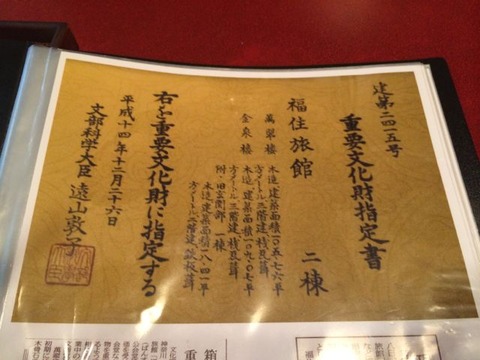 建第二四一五号
重要文化財指定書
福住旅館 二棟
萬翠楼 木造、建築面積一〇五・七六平
方メートル、三階建、桟瓦葺
金泉楼 木造、建築面積一〇九・〇七平
方メートル、三階建、桟瓦葺
附・旧玄関部 一棟
木造、建築面積一八・四一平
方メートル、二階建、鉄板葺
右を重要文化財に指定する
平成十四年十二月二十六日
文部科学大臣 遠山敦子
箱
重
文化
神奈川